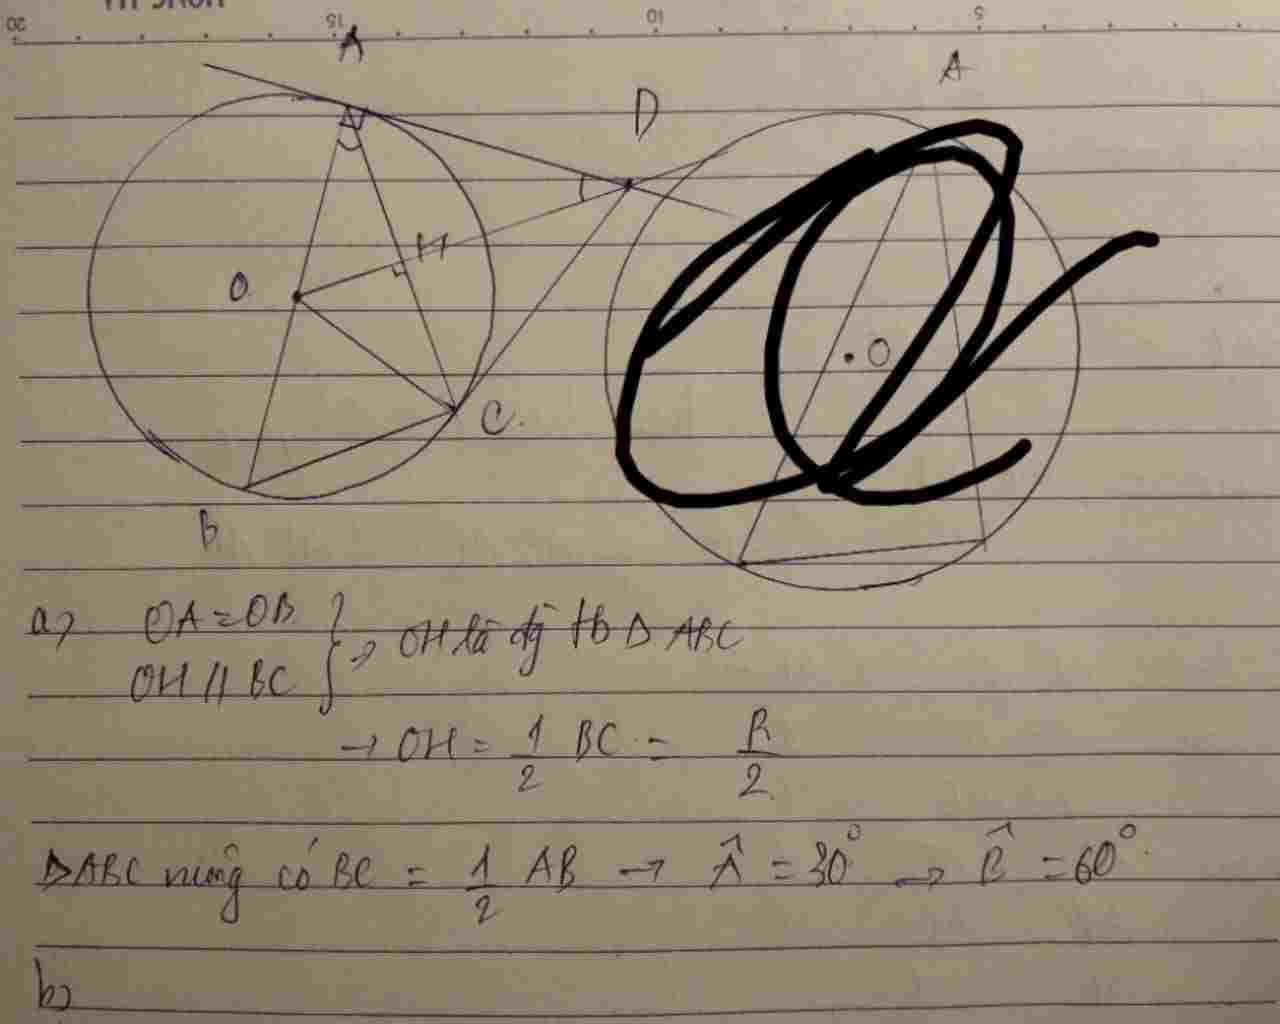 20 15 10 5
A
A
D
H
O
O
C.
B
a, OA = OB
OH // BC } → OH là đg tb Δ ABC
→ OH = 1/2 BC = R/2
ΔABC nuông có BC = 1/2 AB → Â = 30° → B̂ = 60°.
b,